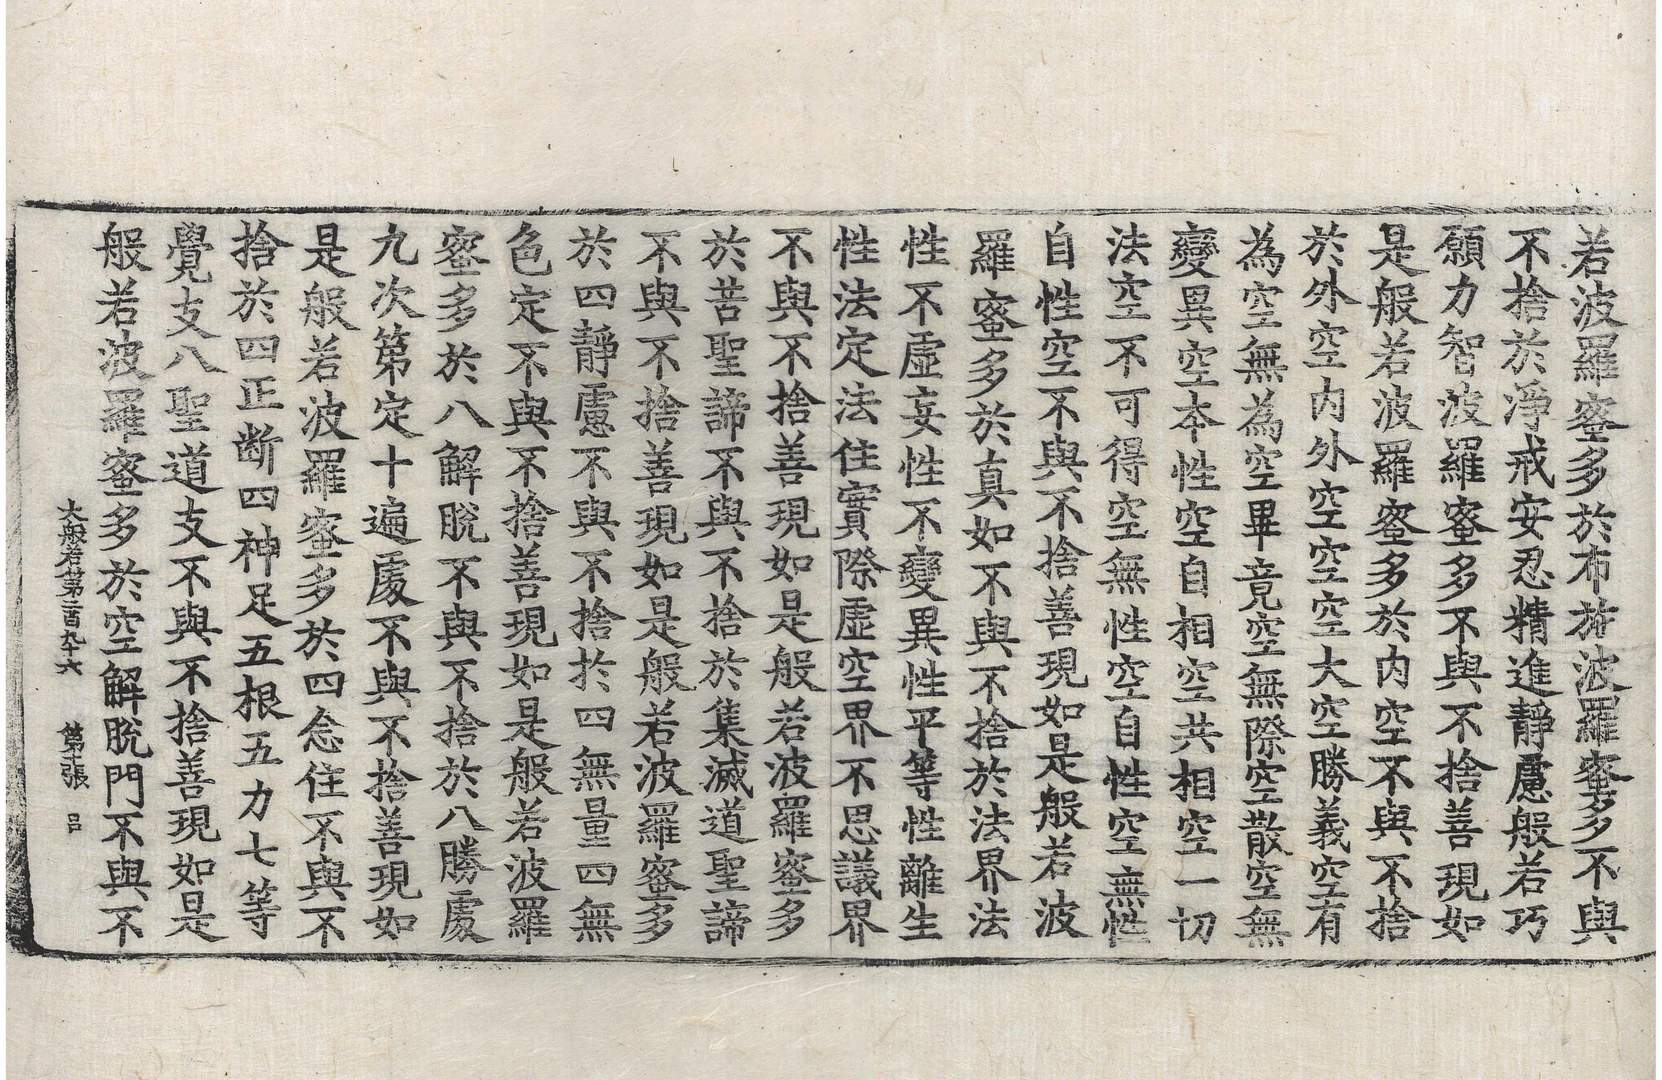 若波羅蜜多於布施波羅蜜多不與
不捨於淨戒安忍精進靜慮般若巧
願力智波羅蜜多不與不捨善現如
是般若波羅蜜多於內空不與不捨
於外空內外空空空大空勝義空有
為空無為空畢竟空無際空散空無
變異空本性空自相空共相空一切
法空不可得空無性空自性空無性
自性空不與不捨善現如是般若波
羅蜜多於真如不與不捨於法界法
性不虛妄性不變異性平等性離生
性法定法住實際虛空界不思議界
不與不捨善現如是般若波羅蜜多
於苦聖諦不與不捨於集滅道聖諦
不與不捨善現如是般若波羅蜜多
於四靜慮不與不捨於四無量四無
色定不與不捨善現如是般若波羅
蜜多於八解脫不與不捨於八勝處
九次第定十遍處不與不捨善現如
是般若波羅蜜多於四念住不與不
捨於四正断四神足五根五力七等
覺支八聖道支不與不捨善現如是
般若波羅蜜多於空解脫門不與不
大般若第二百九十六 第十張 呂